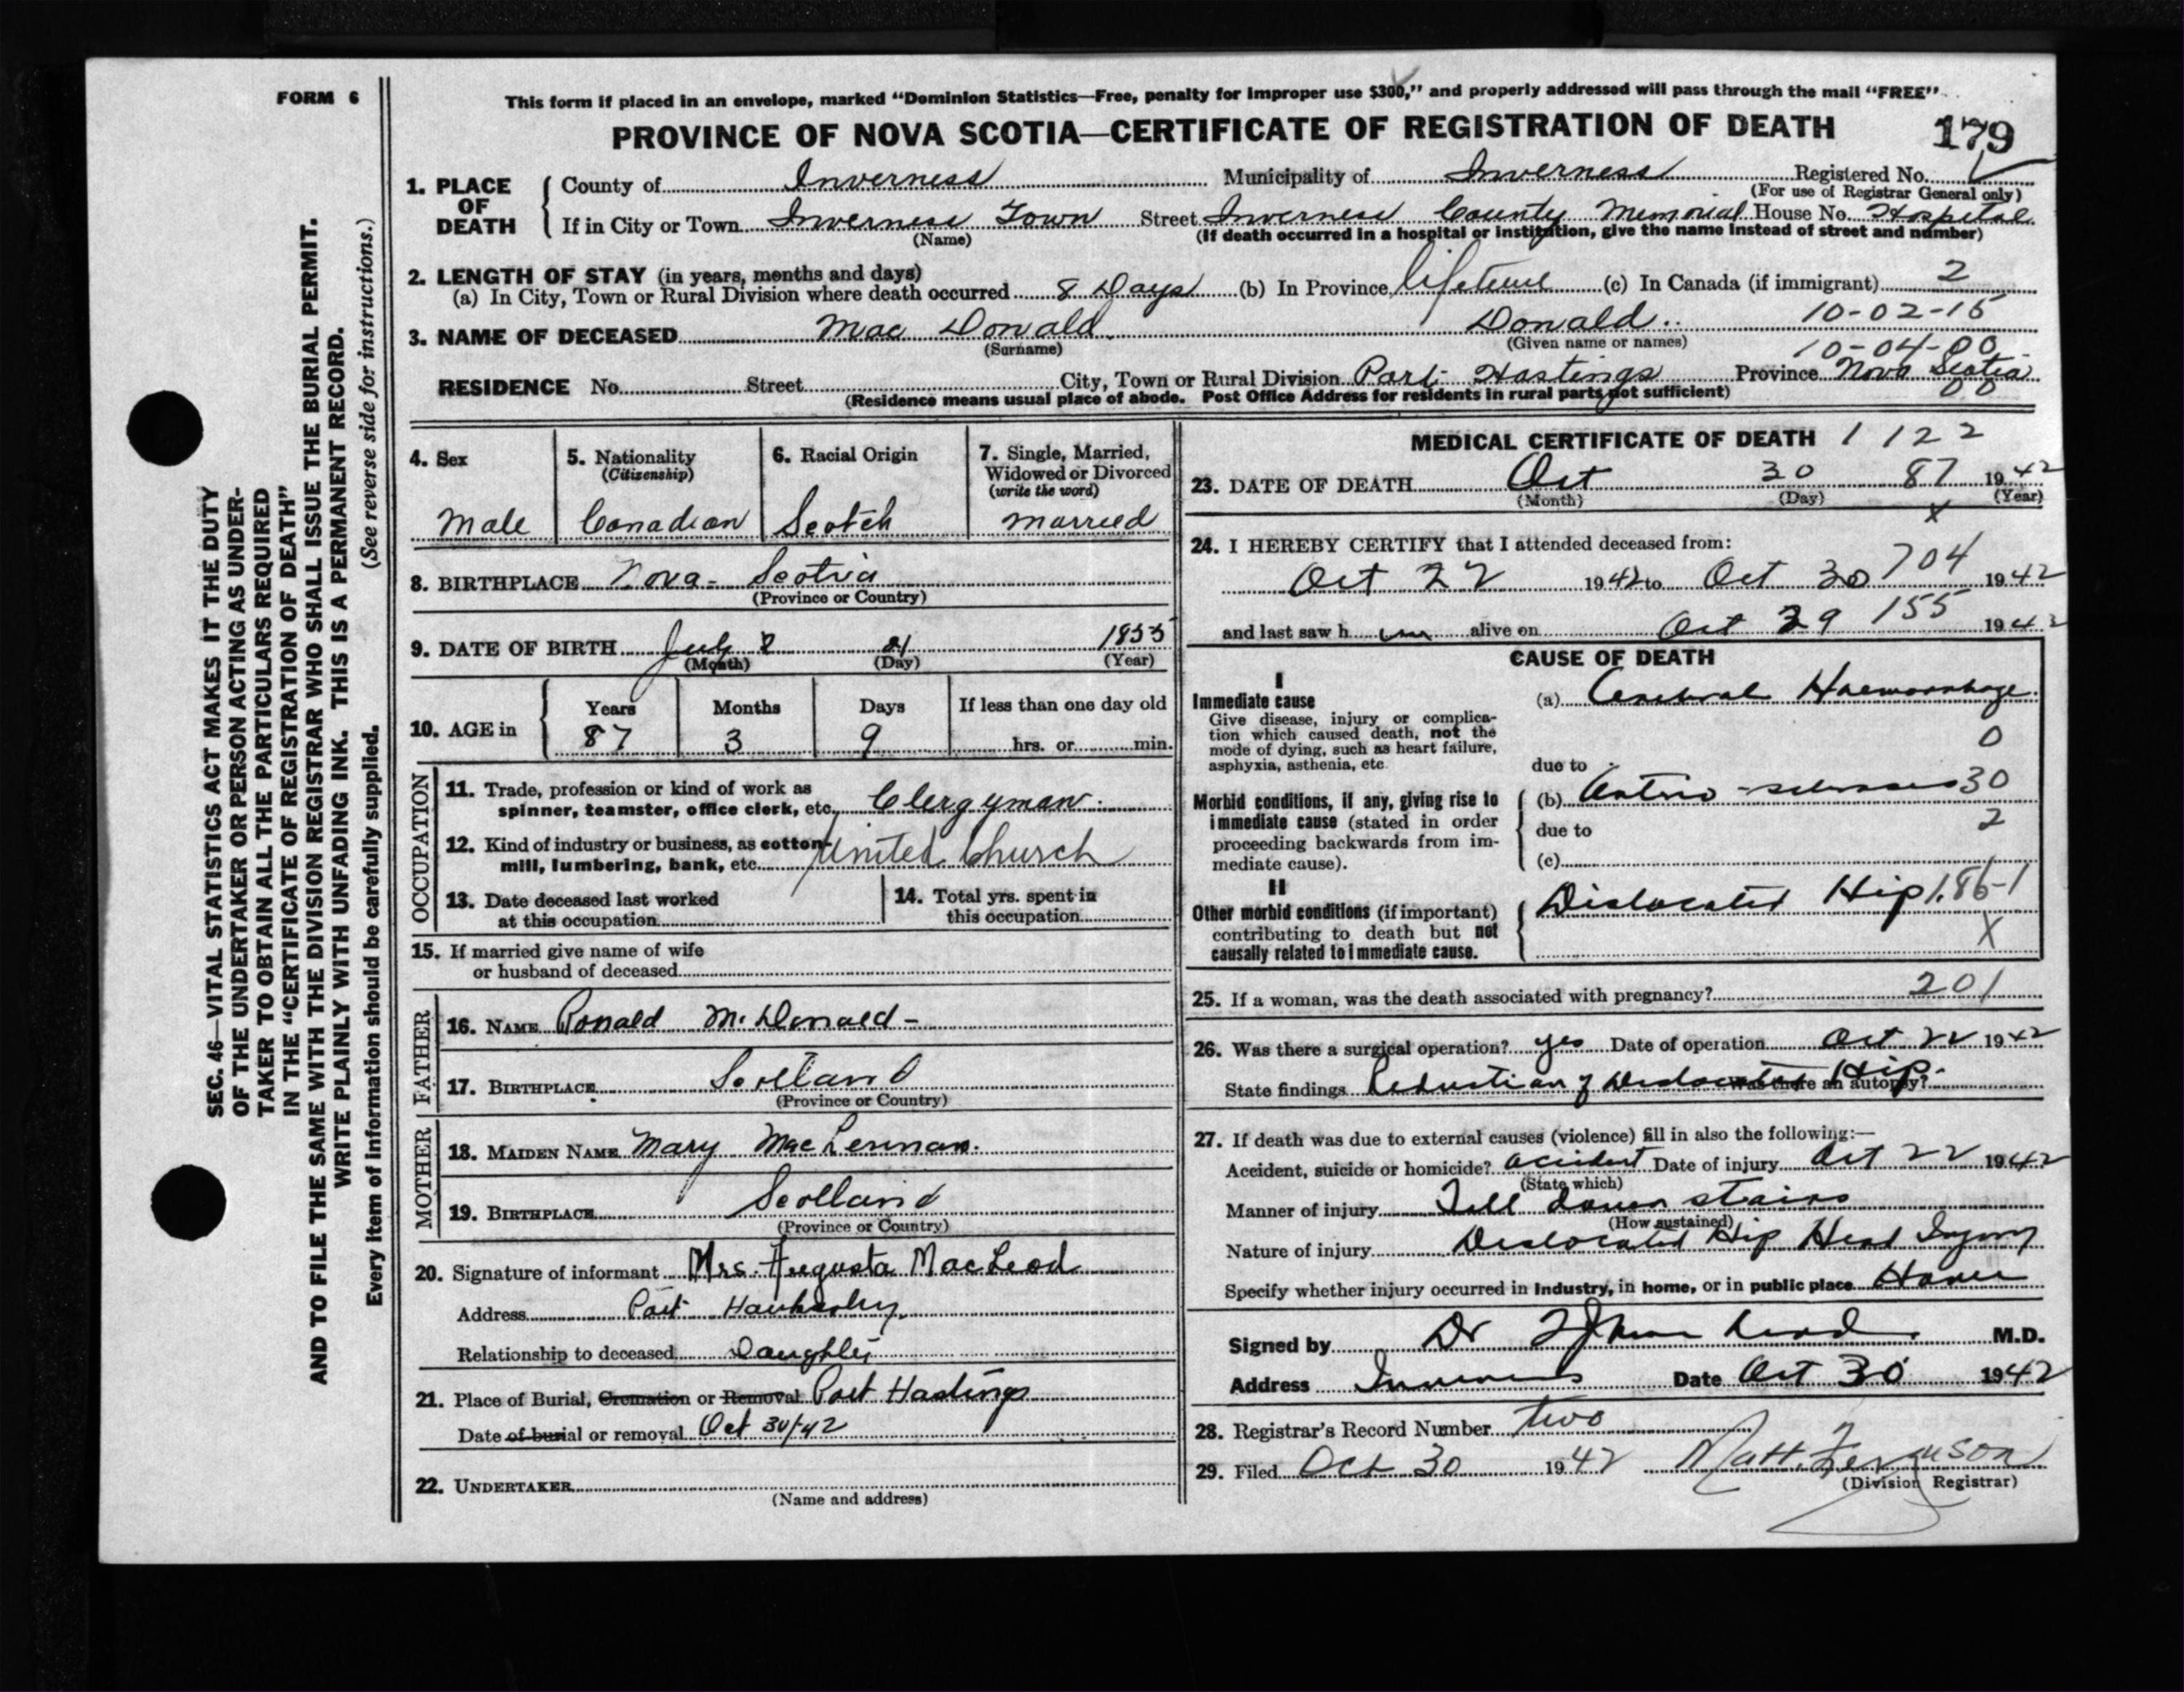 FORM 6
This form if placed in an envelope, marked "Dominion Statistics—Free, penalty for improper use $300," and properly addressed will pass through the mail "FREE"
PROVINCE OF NOVA SCOTIA—CERTIFICATE OF REGISTRATION OF DEATH 179
1. PLACE OF DEATH County of Inverness Municipality of Inverness Registered No.
(For use of Registrar General only)
If in City or Town Inverness Town Street Inverness County Memorial House No. Hospital
(Name) (If death occurred in a hospital or institution, give the name instead of street and number)
2. LENGTH OF STAY (in years, months and days)
(a) In City, Town or Rural Division where death occurred 8 Days (b) In Province lifetime (c) In Canada (if immigrant) 2
10-02-15
3. NAME OF DECEASED Mac Donald Donald
(Surname) (Given name or names)
10-04-00
RESIDENCE No. Street City, Town or Rural Division Port Hastings Province Nova Scotia
(Residence means usual place of abode. Post Office Address for residents in rural parts not sufficient) 00
4. Sex
Male
5. Nationality
(Citizenship)
Canadian
6. Racial Origin
Scotch
7. Single, Married,
Widowed or Divorced
(write the word)
married
8. BIRTHPLACE Nova-Scotia
(Province or Country)
9. DATE OF BIRTH July 21 1855
(Month) (Day) (Year)
10. AGE in Years Months Days If less than one day old
87 3 9 hrs. or min.
OCCUPATION
11. Trade, profession or kind of work as
spinner, teamster, office clerk, etc. Clergyman
12. Kind of industry or business, as cotton-
mill, lumbering, bank, etc. United Church
13. Date deceased last worked
at this occupation
14. Total yrs. spent in
this occupation
15. If married give name of wife
or husband of deceased
FATHER
16. NAME Ronald McDonald-
17. BIRTHPLACE Scotland
(Province or Country)
MOTHER
18. MAIDEN NAME Mary MacLennan.
19. BIRTHPLACE Scotland
(Province or Country)
20. Signature of informant Mrs. Augusta MacLeod
Address Port Hawkesbury
Relationship to deceased Daughter
21. Place of Burial, Cremation or Removal Port Hastings
Date of burial or removal Oct 30/42
22. UNDERTAKER
(Name and address)
MEDICAL CERTIFICATE OF DEATH 1 122
23. DATE OF DEATH Oct 30 87 1942
(Month) (Day) (Year)
X
24. I HEREBY CERTIFY that I attended deceased from:
Oct 22 1942 to Oct 30 704 1942
and last saw h im alive on Oct 29 155 1942
CAUSE OF DEATH
I
Immediate cause (a) Cerebral Haemorrhage.
Give disease, injury or complica-
tion which caused death, not the
mode of dying, such as heart failure,
asphyxia, asthenia, etc.
0
due to
Morbid conditions, if any, giving rise to
immediate cause (stated in order
proceeding backwards from im-
mediate cause).
(b) Arterio-sclerosis 30
due to 2
(c)
II
Other morbid conditions (if important)
contributing to death but not
causally related to immediate cause.
Dislocated Hip 186-1
X
25. If a woman, was the death associated with pregnancy? 201
26. Was there a surgical operation? yes Date of operation Oct 22 1942
State findings Reduction of Dislocated Hip. Was there an autopsy?
27. If death was due to external causes (violence) fill in also the following:—
Accident, suicide or homicide? accident Date of injury Oct 22 1942
(State which)
Manner of injury Fell down stairs
(How sustained)
Nature of injury Dislocated Hip Head Injury
Specify whether injury occurred in industry, in home, or in public place Home
Signed by Dr M.D.
Address Inverness Date Oct 30 1942
28. Registrar's Record Number two
29. Filed Oct 30 1942 Matt. Ferguson
(Division Registrar)
SEC. 46—VITAL STATISTICS ACT MAKES IT THE DUTY
OF THE UNDERTAKER OR PERSON ACTING AS UNDER-
TAKER TO OBTAIN ALL THE PARTICULARS REQUIRED
IN THE "CERTIFICATE OF REGISTRATION OF DEATH"
AND TO FILE THE SAME WITH THE DIVISION REGISTRAR WHO SHALL ISSUE THE BURIAL PERMIT.
WRITE PLAINLY WITH UNFADING INK. THIS IS A PERMANENT RECORD.
Every item of information should be carefully supplied. (See reverse side for instructions.)